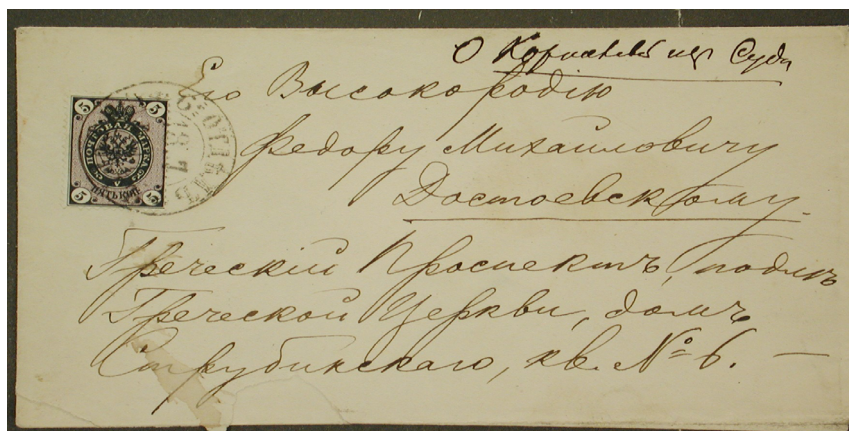 О Корниловой из Суда
Его Высокородію
Федору Михайловичу
Достоевскому.
Греческій Проспектъ, подлѣ
Греческой Церкви, домъ
Струбинскаго, кв. № 6. —
5 5
ПОЧТОВАЯ МАРКА
ПЯТЬ КОП.
5 5